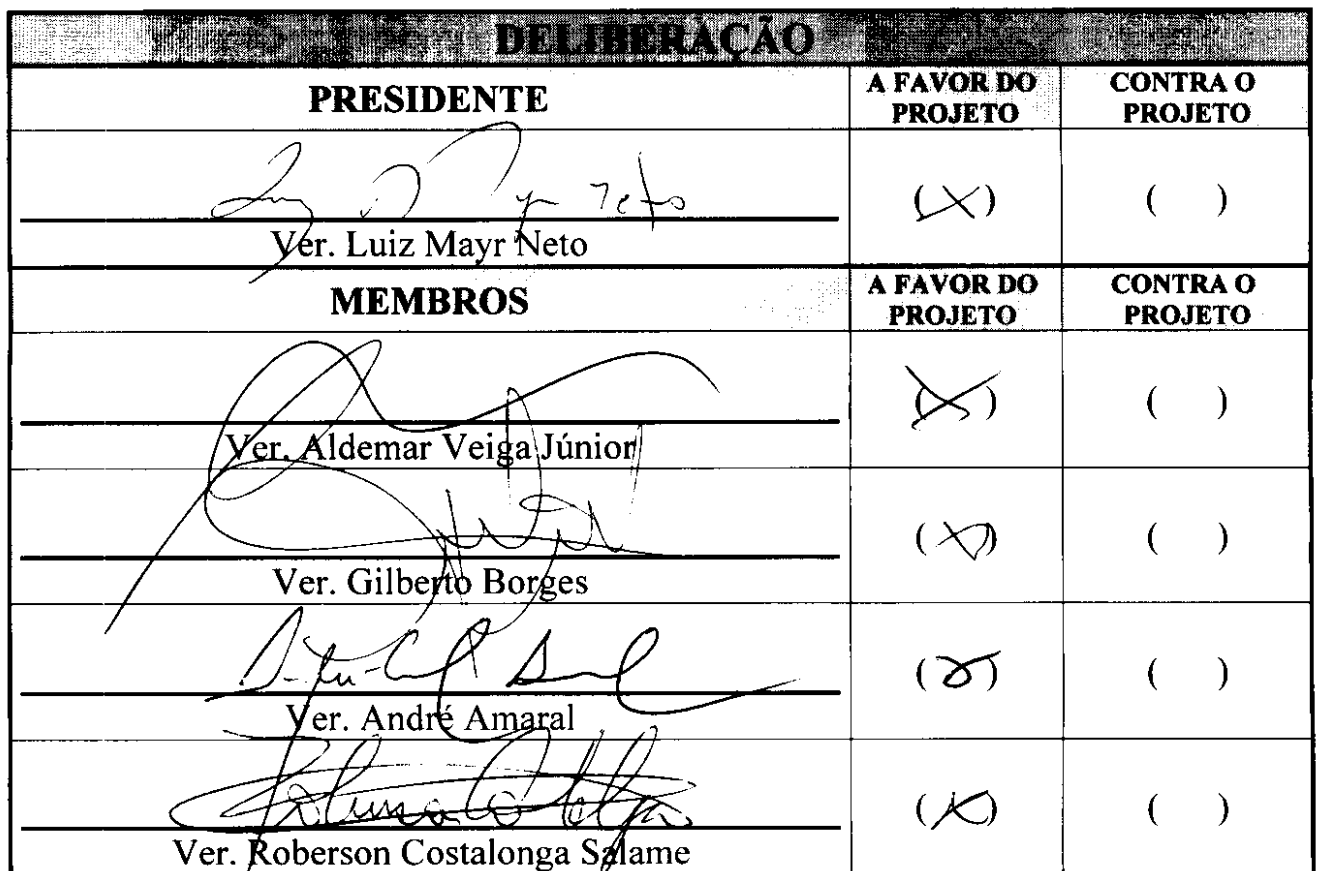 DELIBERAÇÃO
PRESIDENTE A FAVOR DO PROJETO CONTRA O PROJETO
Neto (X) ( )
Ver. Luiz Mayr Neto
MEMBROS A FAVOR DO PROJETO CONTRA O PROJETO
(X) ( )
Ver. Aldemar Veiga Júnior
(X) ( )
Ver. Gilberto Borges
(X) ( )
Ver. André Amaral
(X) ( )
Ver. Roberson Costalonga Salame